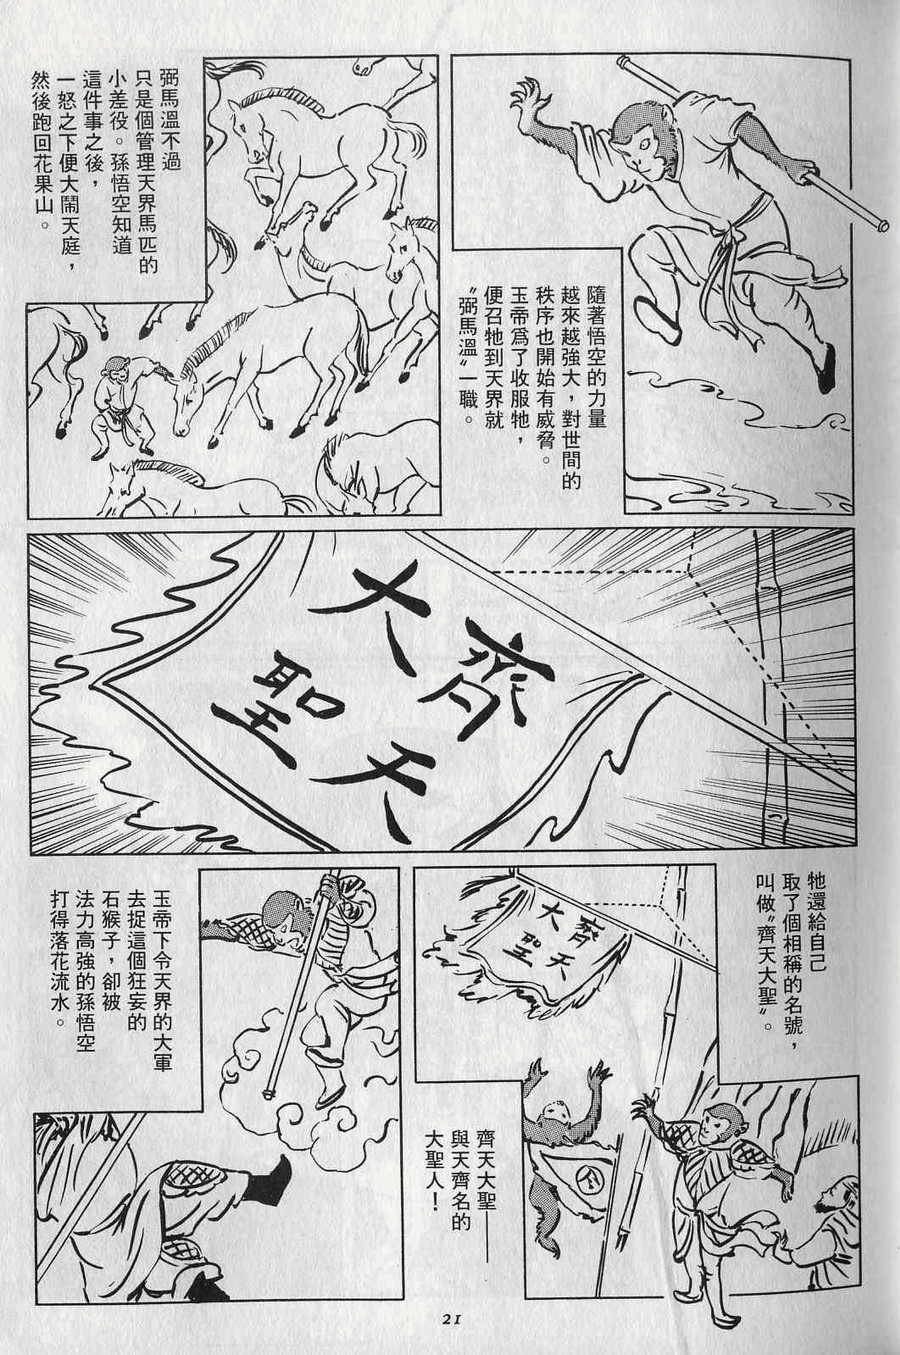 隨著悟空的力量
越來越強大，對世間的
秩序也開始有威脅。
玉帝為了收服牠，
便召牠到天界就
〝弼馬溫〞一職。
弼馬溫不過
只是個管理天界馬匹的
小差役。孫悟空知道
這件事之後，
一怒之下便大鬧天庭，
然後跑回花果山。
齊天
大聖
牠還給自己
取了個相稱的名號，
叫做〝齊天大聖〞。
齊天
大聖
令
齊天大聖——
與天齊名的
大聖人！
玉帝下令天界的大軍
去捉這個狂妄的
石猴子，卻被
法力高強的孫悟空
打得落花流水。
21